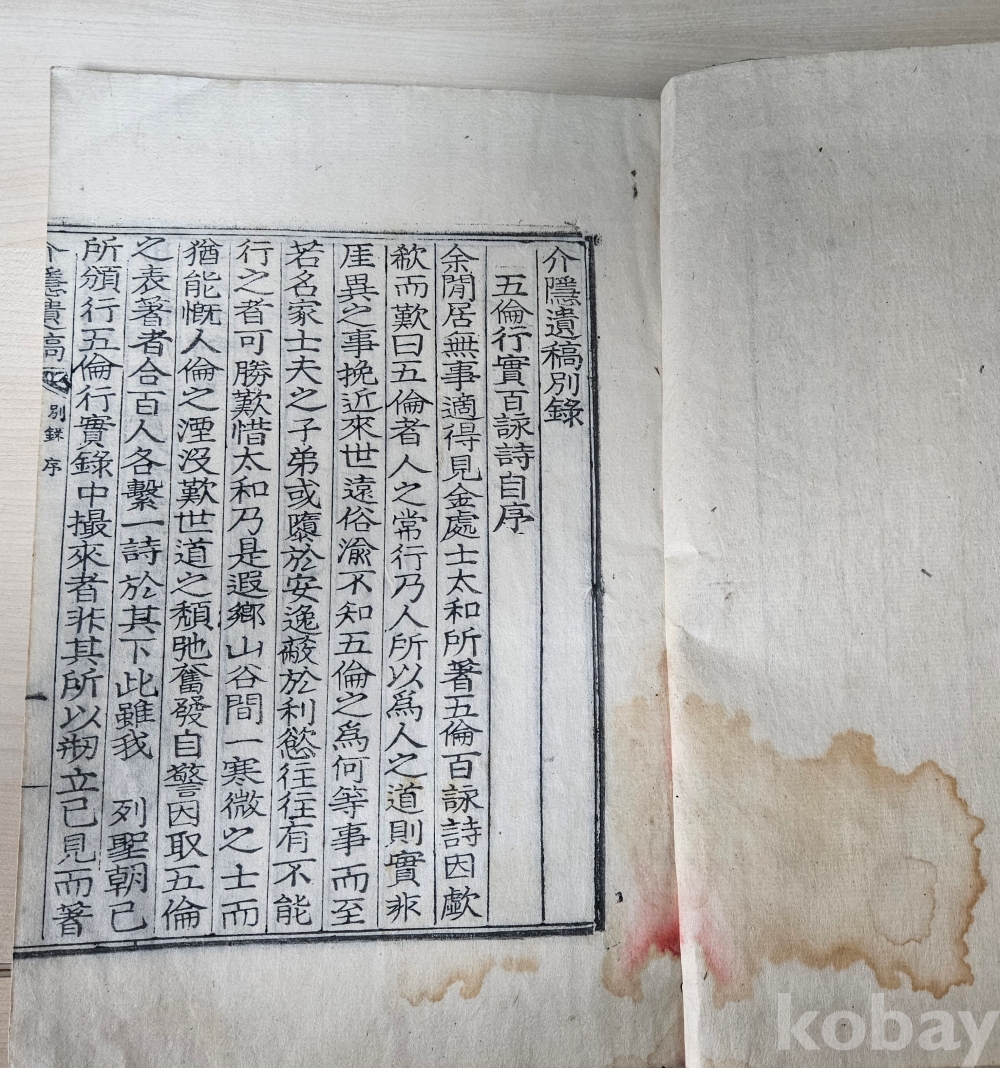 介隱遺稿別錄
五倫行實百詠詩自序
余閒居無事適得見金處士太和所著五倫百詠詩因歔
欷而歎曰五倫者人之常行乃人所以爲人之道則實非
厓異之事挽近來世遠俗渝不知五倫之爲何等事而至
若名家士夫之子弟或隳於安逸蔽於利慾往往有不能
行之者可勝歎惜太和乃是遐鄉山谷間一寒微之士而
猶能慨人倫之湮沒歎世道之頹弛奮發自警因取五倫
之表著者合百人各繫一詩於其下此雖我 列聖朝已
所頒行五倫行實錄中撮來者非其所以刱立己見而著
介隱遺稿 別錄 序 一
kobay